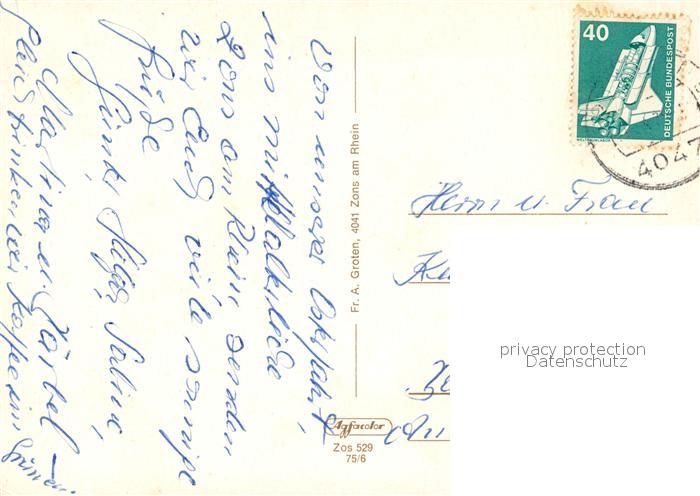 Von unserer
ins mittelalterliche
Zons am Rhein, senden
wir Euch viele sonnige
Grüße
Günter, Helga, Sabine,
Martina u. Bärbel
Kaffee im
Fr. A. Groten, 4041 Zons am Rhein
Agfacolor
Zos 529
75/6
40
DEUTSCHE BUNDESPOST
WELTRAUMLABOR
4047
Herrn u. Frau
privacy protection
Datenschutz